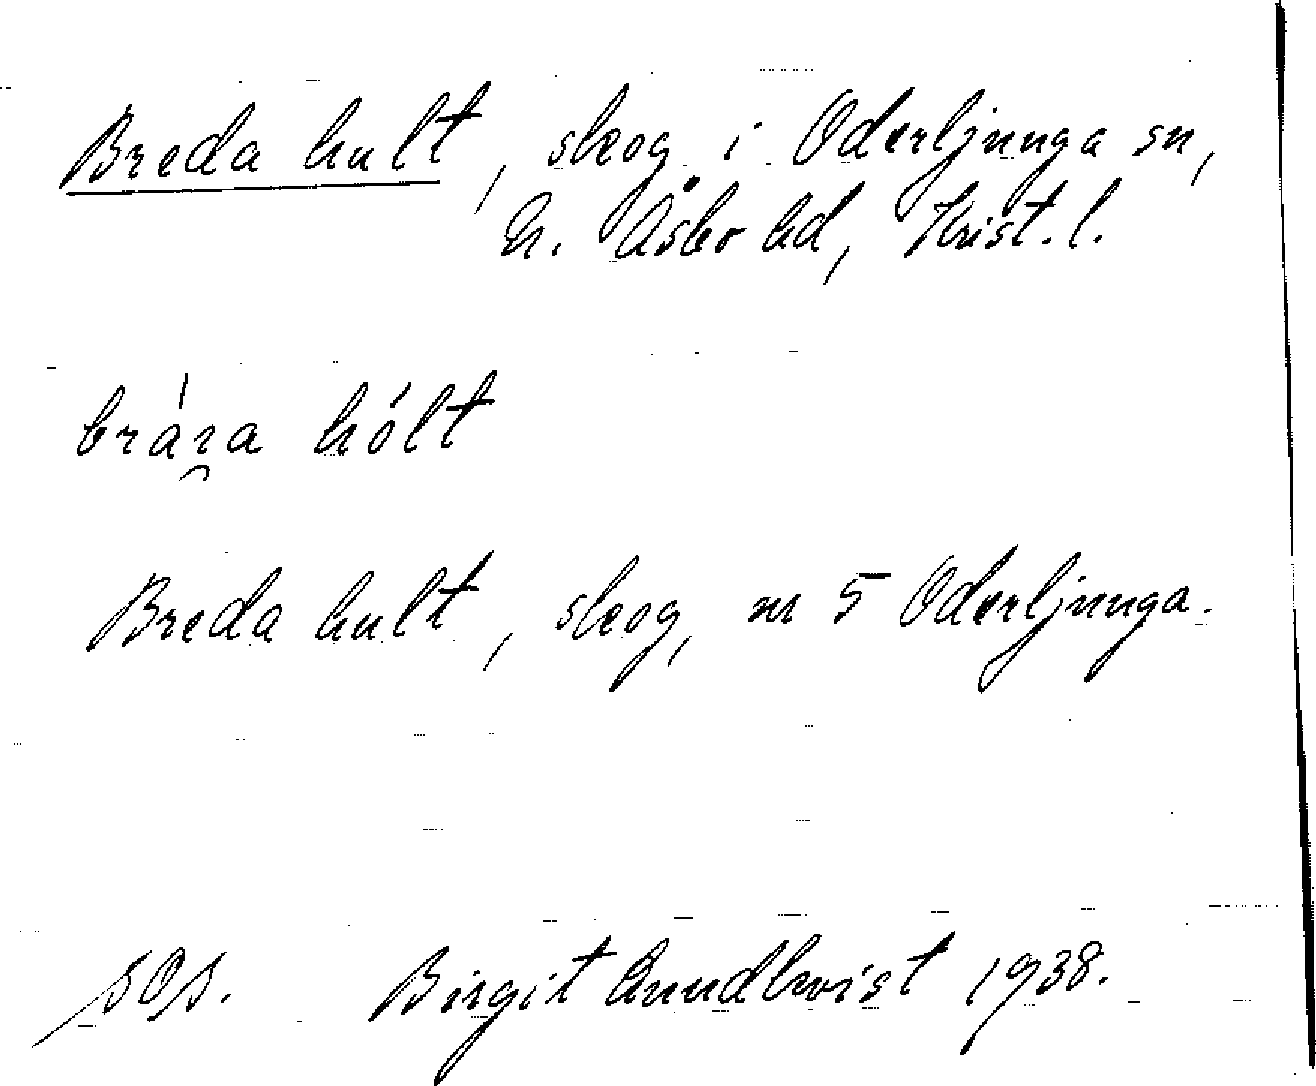 Breda hult, skog i Oderljunga sn,
N. Åsbo hd, Krist. l.
brára hólt
Breda hult, skog, nr 5 Oderljunga.
SOS. Birgit Lundkvist 1938.